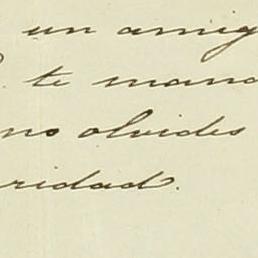 un amig
te mand
no olvides
ridad.